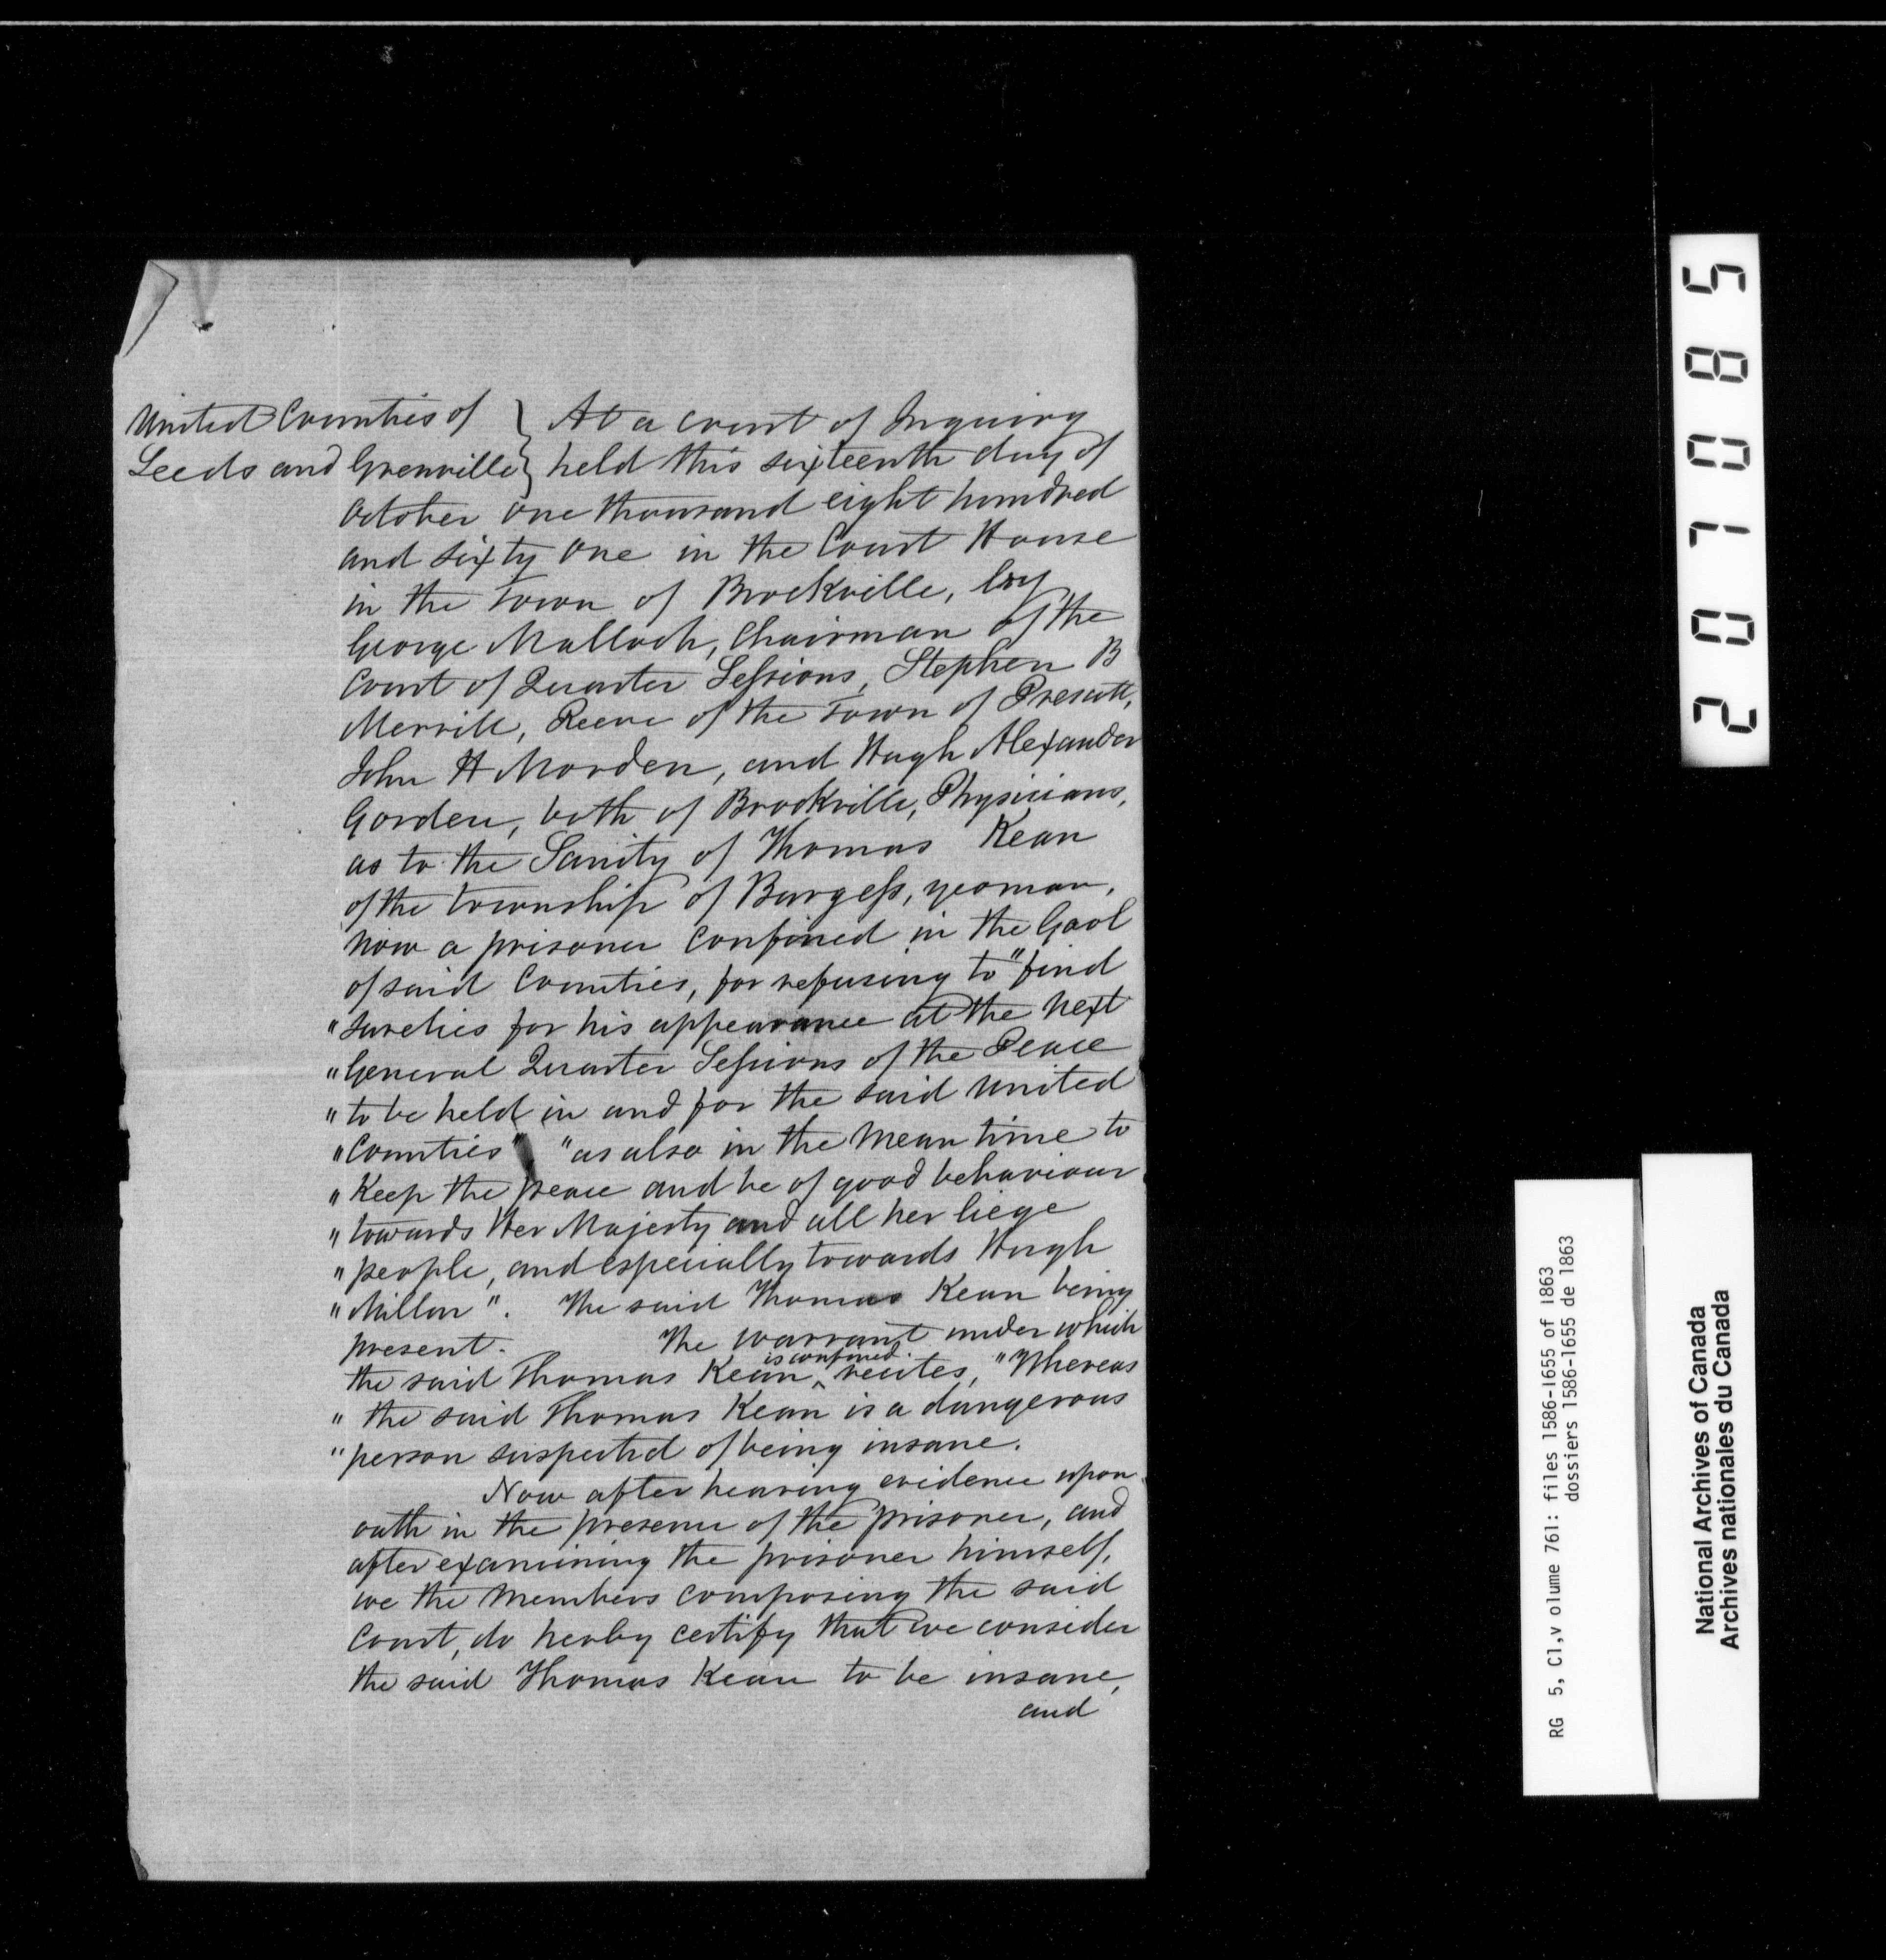 United Counties of } At a court of Inquiry
Leeds and Grenville } held this sixteenth day of
October One thousand eight hundred
and sixty One in the Court House
in the Town of Brockville, by
George Malloch, Chairman of the
Court of Quarter Sessions, Stephen B
Merrill, Reeve of the Town of Prescott,
John H Morden, and Hugh Alexander
Gorden, both of Brockville, Physicians,
as to the Sanity of Thomas Kean
of the township of Burgess, yeoman,
now a prisoner confined in the Gaol
of said Counties, for refusing to "find
"sureties for his appearance at the next
"General Quarter Sessions of the Peace
"to be held in and for the said United
"Counties" "as also in the mean time to
"Keep the peace and be of good behaviour
"towards Her Majesty and all her liege
"people, and especially towards Hugh
"Millon". The said Thomas Kean being
present. The warrant under which
the said Thomas Kean ^is confined recites, "Whereas
"the said Thomas Kean is a dangerous
"person suspected of being insane.
Now after hearing evidence upon
oath in the presence of the prisoner, and
after examining the prisoner himself,
we the members composing the said
Court, do herby certify that we consider
the said Thomas Kean to be insane,
and
207085
RG 5, C1,v olume 761: files 1586-1655 of 1863
dossiers 1586-1655 de 1863
National Archives of Canada
Archives nationales du Canada